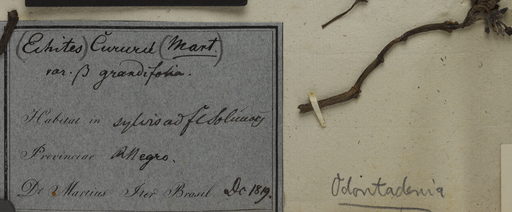 (Echites) Cururu (Mart.)
var. β grandifolia.
Habitat in sylvis ad fl Solimoes
Provinciae R Negro.
De Martius Iter Brasil. Dc 1819.
Odontadenia